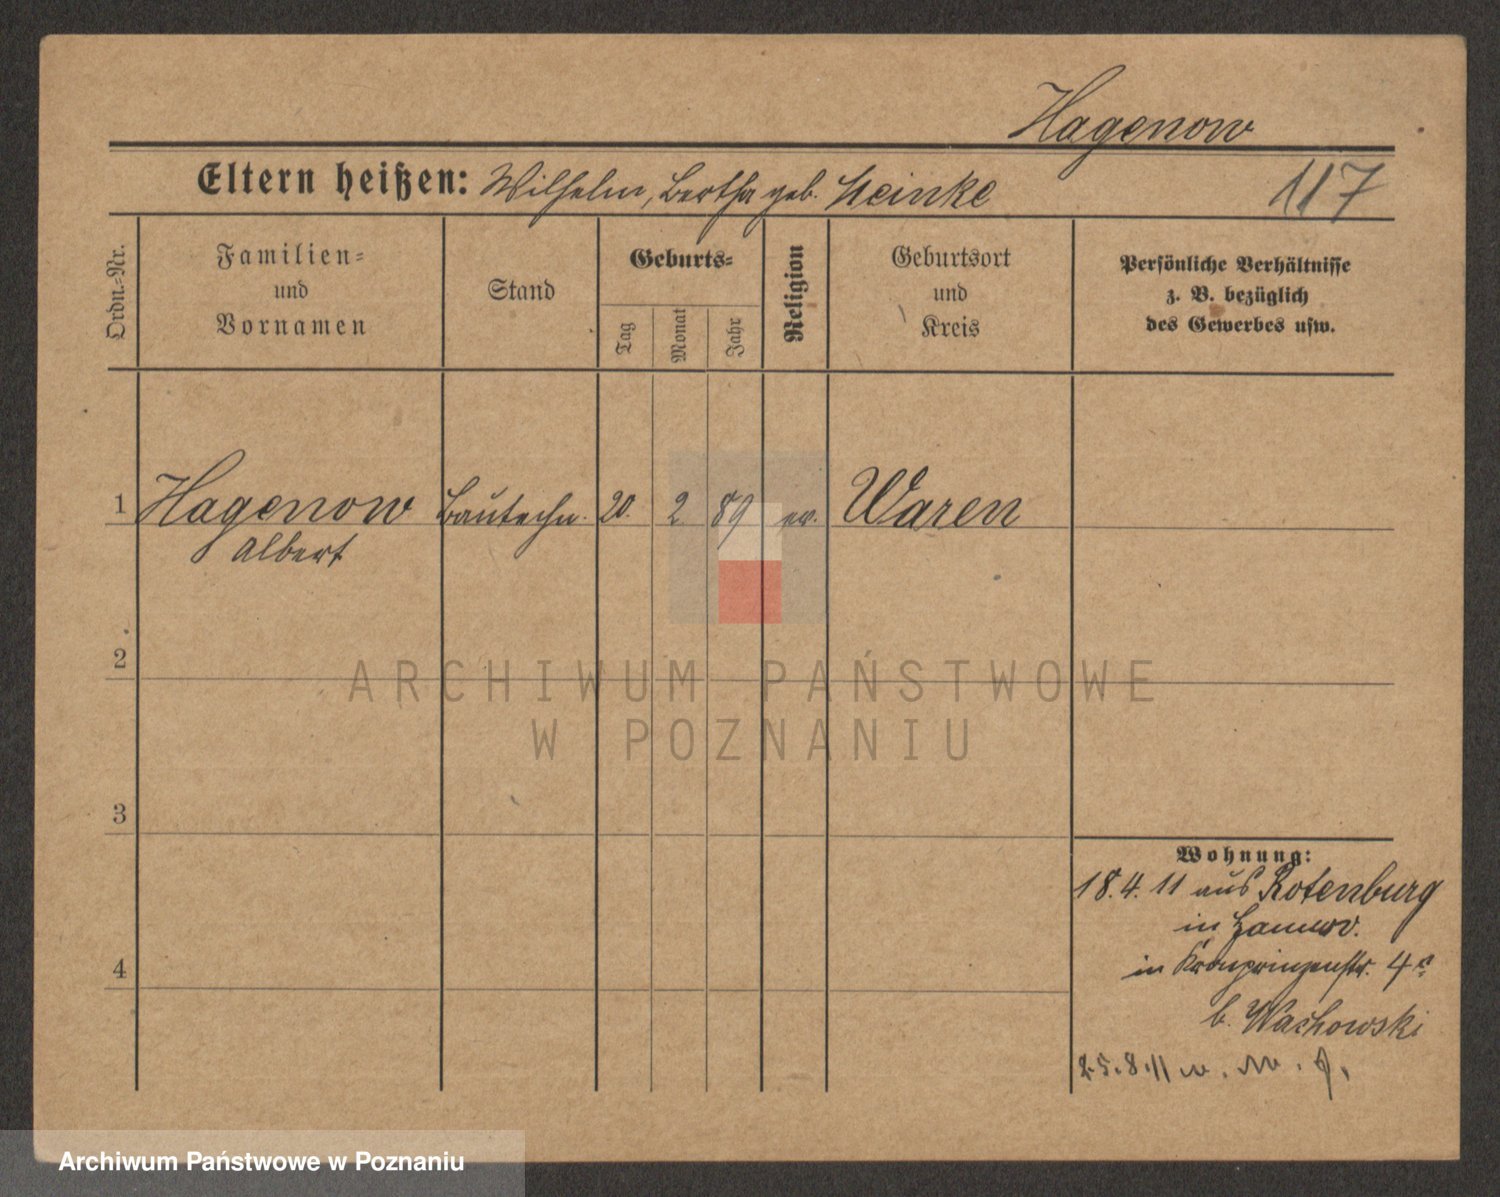 Hagenow
Eltern heißen: Wilhelm, Bertha geb. Heinke
117
Ordn.-Nr.
Familien-
und
Vornamen
Stand
Geburts-
Tag
Monat
Jahr
Religion
Geburtsort
und
Kreis
Persönliche Verhältnisse
z. B. bezüglich
des Gewerbes usw.
1 Hagenow Bautechn. 20. 2 89 ev. Waren
Albert
2
3
4
ARCHIWUM PAŃSTWOWE
W POZNANIU
Wohnung:
18.4.11 aus Rotenburg
in Hannov.
in Kronprinzenstr. 4
b. Wachowski
25.8.11 n.
Archiwum Państwowe w Poznaniu